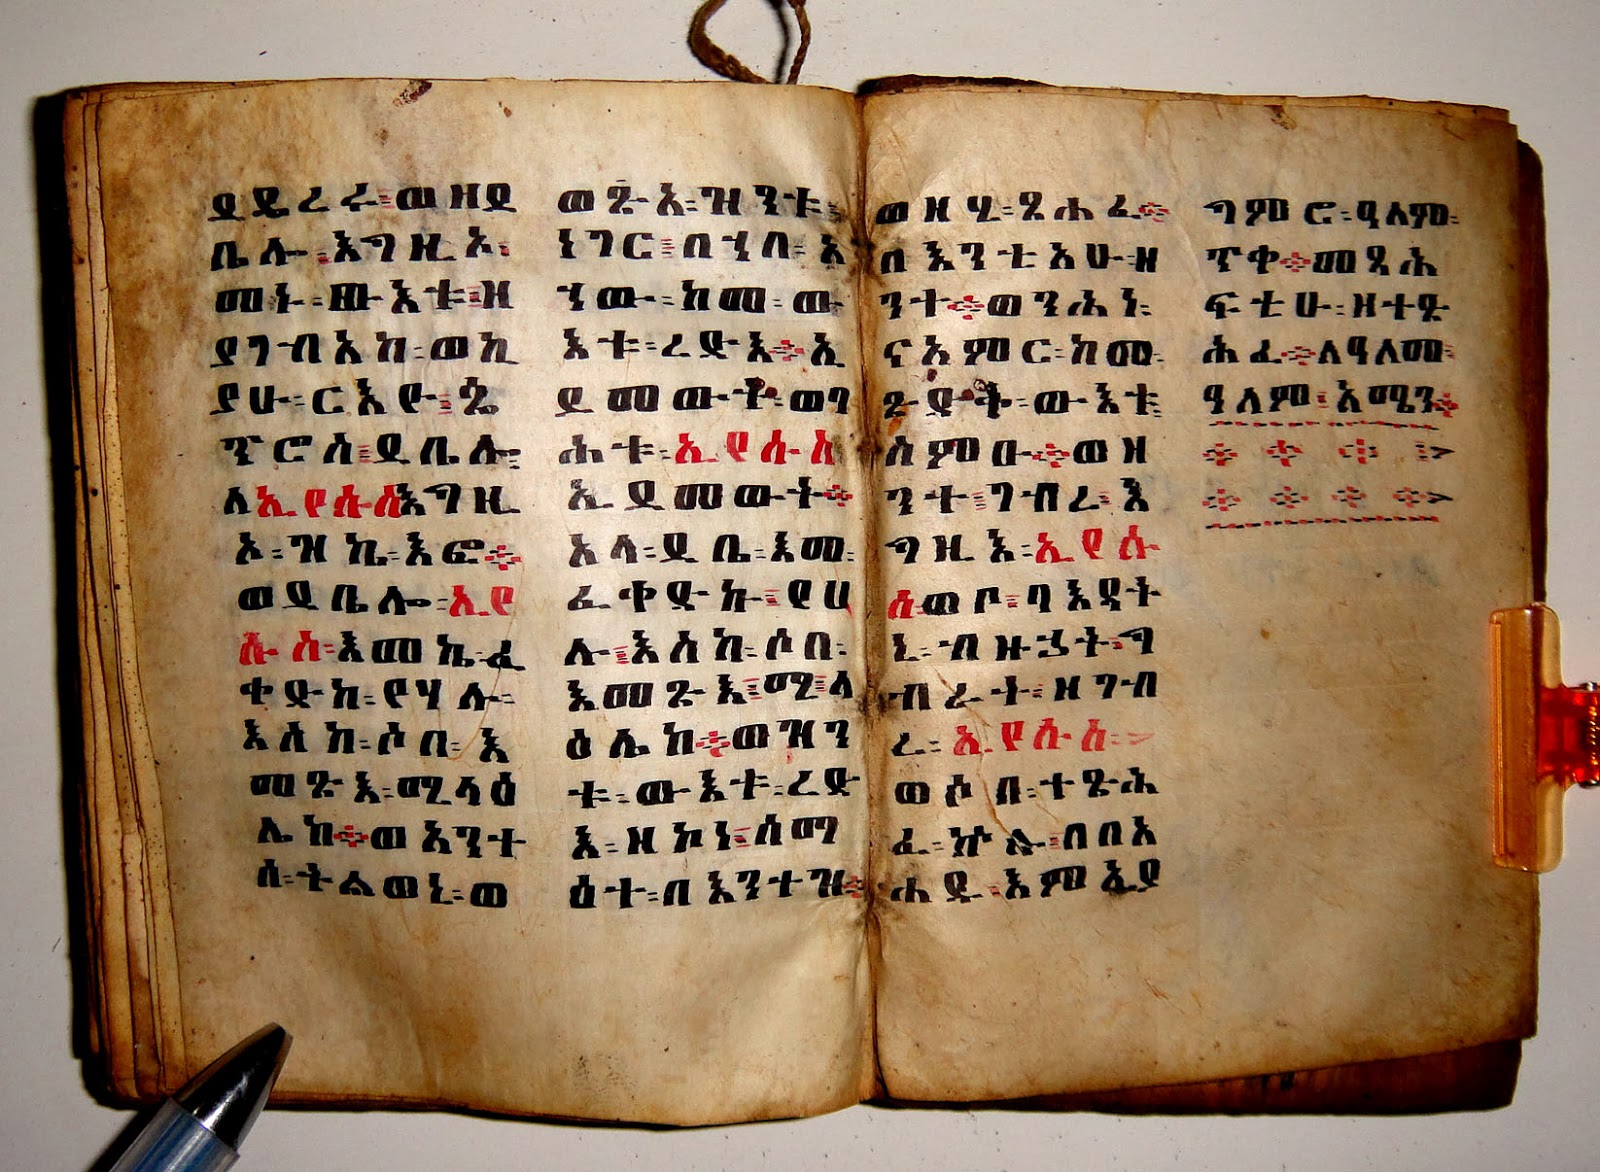 ይዴረሩ፡ወዘይ
ቤሎ፡እግዚኦ፡
መኑ፡ውእቱ፡ዘ
ያገብአከ፡ወኪ
ያሁ፡ርእዮ፡ጴ
ጥሮስ፡ይቤሎ፡
ለኢየሱስእግዚ
ኦ፡ዝኬ፡እፎ።
ወይቤሎ፡ኢየ
ሱስ፡እመኬ፡ፈ
ቀድኩ፡የሃሉ፡
እስከ፡ሶበ፡እ
መጽእ፡ሚላዕ
ሌከ።ወአንተ
ሰ፡ትልወኒ፡ወ
ወጽአ፡ዝንቱ፡
ነገር፡በኀበ፡አ
ኀው፡ከመ፡ው
እቱ፡ረድእ።ኢ
ይመውት፡ወባ
ሕቱ፡ኢየሱስ
ኢይመውት።
አላ፡ይቤ፡እመ፡
ፈቀድኩ፡የሀ
ሉ፡እስከ፡ሶበ፡
እመጽእ፡ሚላ
ዕሌከ።ወዝን
ቱ፡ውእቱ፡ረድ
እ፡ዘኮነ፡ሰማ
ዕተ፡በእንተዝ።
ወዘሂ፡ጸሐፈ።
በእንቲአሁ፡ዘ
ንተ።ወንሕነ፡
ናአምር፡ከመ፡
ጽድቅ፡ውእቱ፡
ስምዑ።ወዘ
ንተ፡ገብረ፡እ
ግዚእ፡ኢየሱ
ስ፡ወቦ፡ባእዳት
ኒ፡ብዙኃት፡ግ
ብራት፡ዘገብ
ረ፡ኢየሱስ፡
ወሶበ፡ተጽሕ
ፈ፡ኵሉ፡በበአ
ሐዱ፡እምኢያ
ግምሮ፡ዓለም፡
ጥቀ።መጻሕ
ፍቲሁ፡ዘተጽ
ሕፈ።ለዓለመ፡
ዓለም፡አሜን።